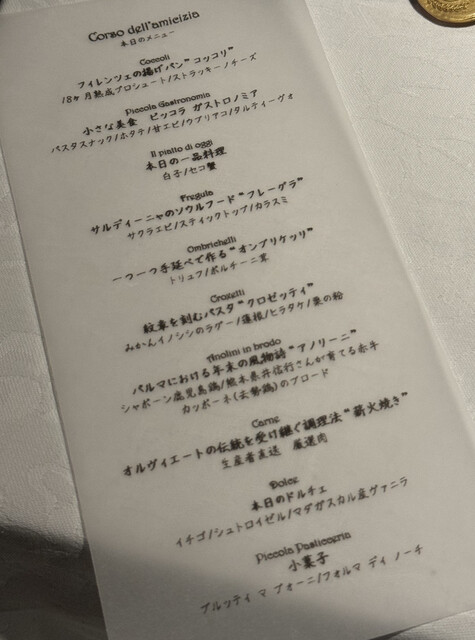 Corso dell'amicizia
本日のメニュー
Coccoli
フィレンツェの揚げパン“コッコリ”
18ヶ月熟成プロシュート/ストラッキーノチーズ
Piccola Gastronomia
小さな美食 ピッコラ ガストロノミア
パスタスナック/ホタテ/甘エビ/ウブリアコ/タルティーヴォ
Il piatto di oggi
本日の一品料理
白子/セコ蟹
Fregula
サルディーニャのソウルフード“フレーグラ”
サクラエビ/スティックトップ/カラスミ
Ombrichelli
一つ一つ手延べで作る“オンブリケッリ”
トリュフ/ポルチーニ茸
Croxetti
紋章を刻むパスタ“クロゼッティ”
みかんイノシシのラグー/蓮根/ヒラタケ/栗の粉
Anolini in brodo
パルマにおける年末の風物詩“アノリーニ”
シャポーン鹿児島鶏/熊本県井信行さんが育てる赤牛
カッポーネ(去勢鶏)のブロード
Carne
オルヴィエートの伝統を受け継ぐ調理法“薪火焼き”
生産者直送 厳選肉
Dolce
本日のドルチェ
イチゴ/シュトロイゼル/マダガスカル産ヴァニラ
Piccola Pasticceria
小菓子
ブルッティ マ ブォーニ/フォルマ ディ ノーチ